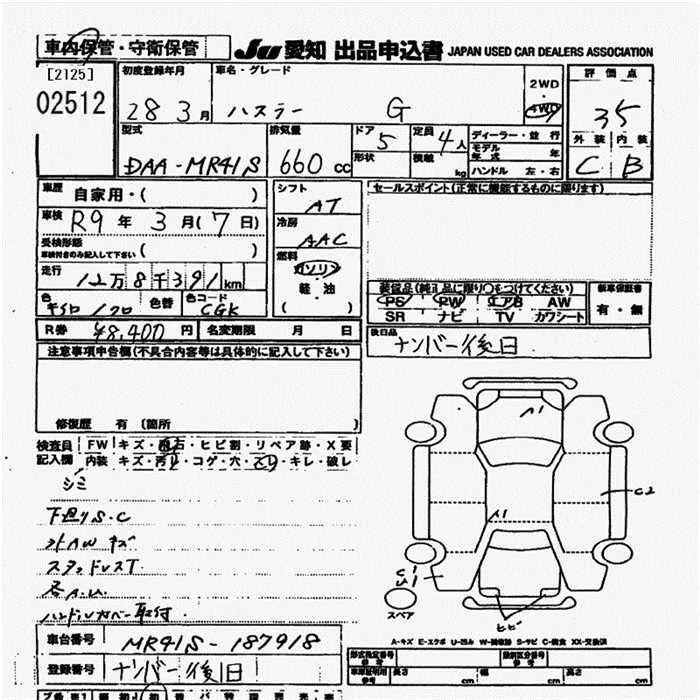 車内保管・守衛保管
JU 愛知 出品申込書 JAPAN USED CAR DEALERS ASSOCIATION
[2125]
02512
初度登録年月
28 3月
車名・グレード
ハスラー G
2WD・4WD
評価点
3.5
外装 内装
C B
型式
DAA-MR41S
排気量
660 cc
ドア 5
形状
定員 4人
積載 kg
ディーラー・並行
モデル年式 年
ハンドル 左・右
車歴 自家用・( )
車検 R9 年 3 月 ( 7 日)
受検形態
車検付きのみ記入して下さい ( )
走行 12万8千391 km
色 1クロ 色替 色コード CGK
R券 ¥8,400 円 名変期限 月 日
シフト AT
冷房 AAC
燃料
ガソリン
軽油
( )
セールスポイント(正常に機能するものに限ります)
装備品(純正品に限り○をつけてください)
PS PW エアB AW
SR ナビ TV カワシート
新車保証書
有・無
後日品
ナンバー後日
注意事項申告欄(不具合内容等は具体的に記入して下さい)
修復歴 有 〔箇所 〕
検査員記入欄
FW キズ・飛石・ヒビ割・リペア跡・X要
内装 キズ・汚れ・コゲ・穴・スレ・キレ・破レ
シミ
下廻りS.C
外AWキズ
スタッドレスT
ハンドルカバー取付
A1
A1
C2
C1
U1
スペア
ヒビ
A-キズ E-エクボ U-凹み W-補修跡 S-サビ C-腐食 XX-交換済
車台番号 MR41S-187918
登録番号 ナンバー後日
形式指定番号 参考
類別区分番号 参考
車庫証明用 参考 長さ cm 幅 cm 高さ cm